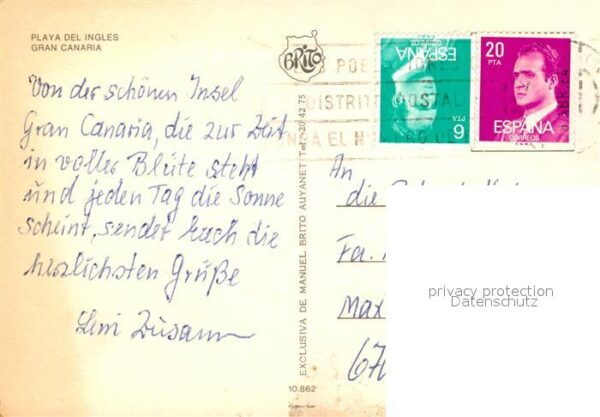 PLAYA DEL INGLES
GRAN CANARIA
Von der schönen Insel
Gran Canaria, die zur Zeit
in voller Blüte steht
und jeden Tag die Sonne
scheint, sendet Euch die
herzlichsten Grüße
BRITO
EXCLUSIVA DE MANUEL BRITO AUYANET Tel.: 20 42 75
10.862
ESPAÑA
CORREOS
6 PTA
20
PTA
ESPAÑA
CORREOS
DISTRITO POSTAL
An
die
Fa.
Max
670
privacy protection
Datenschutz